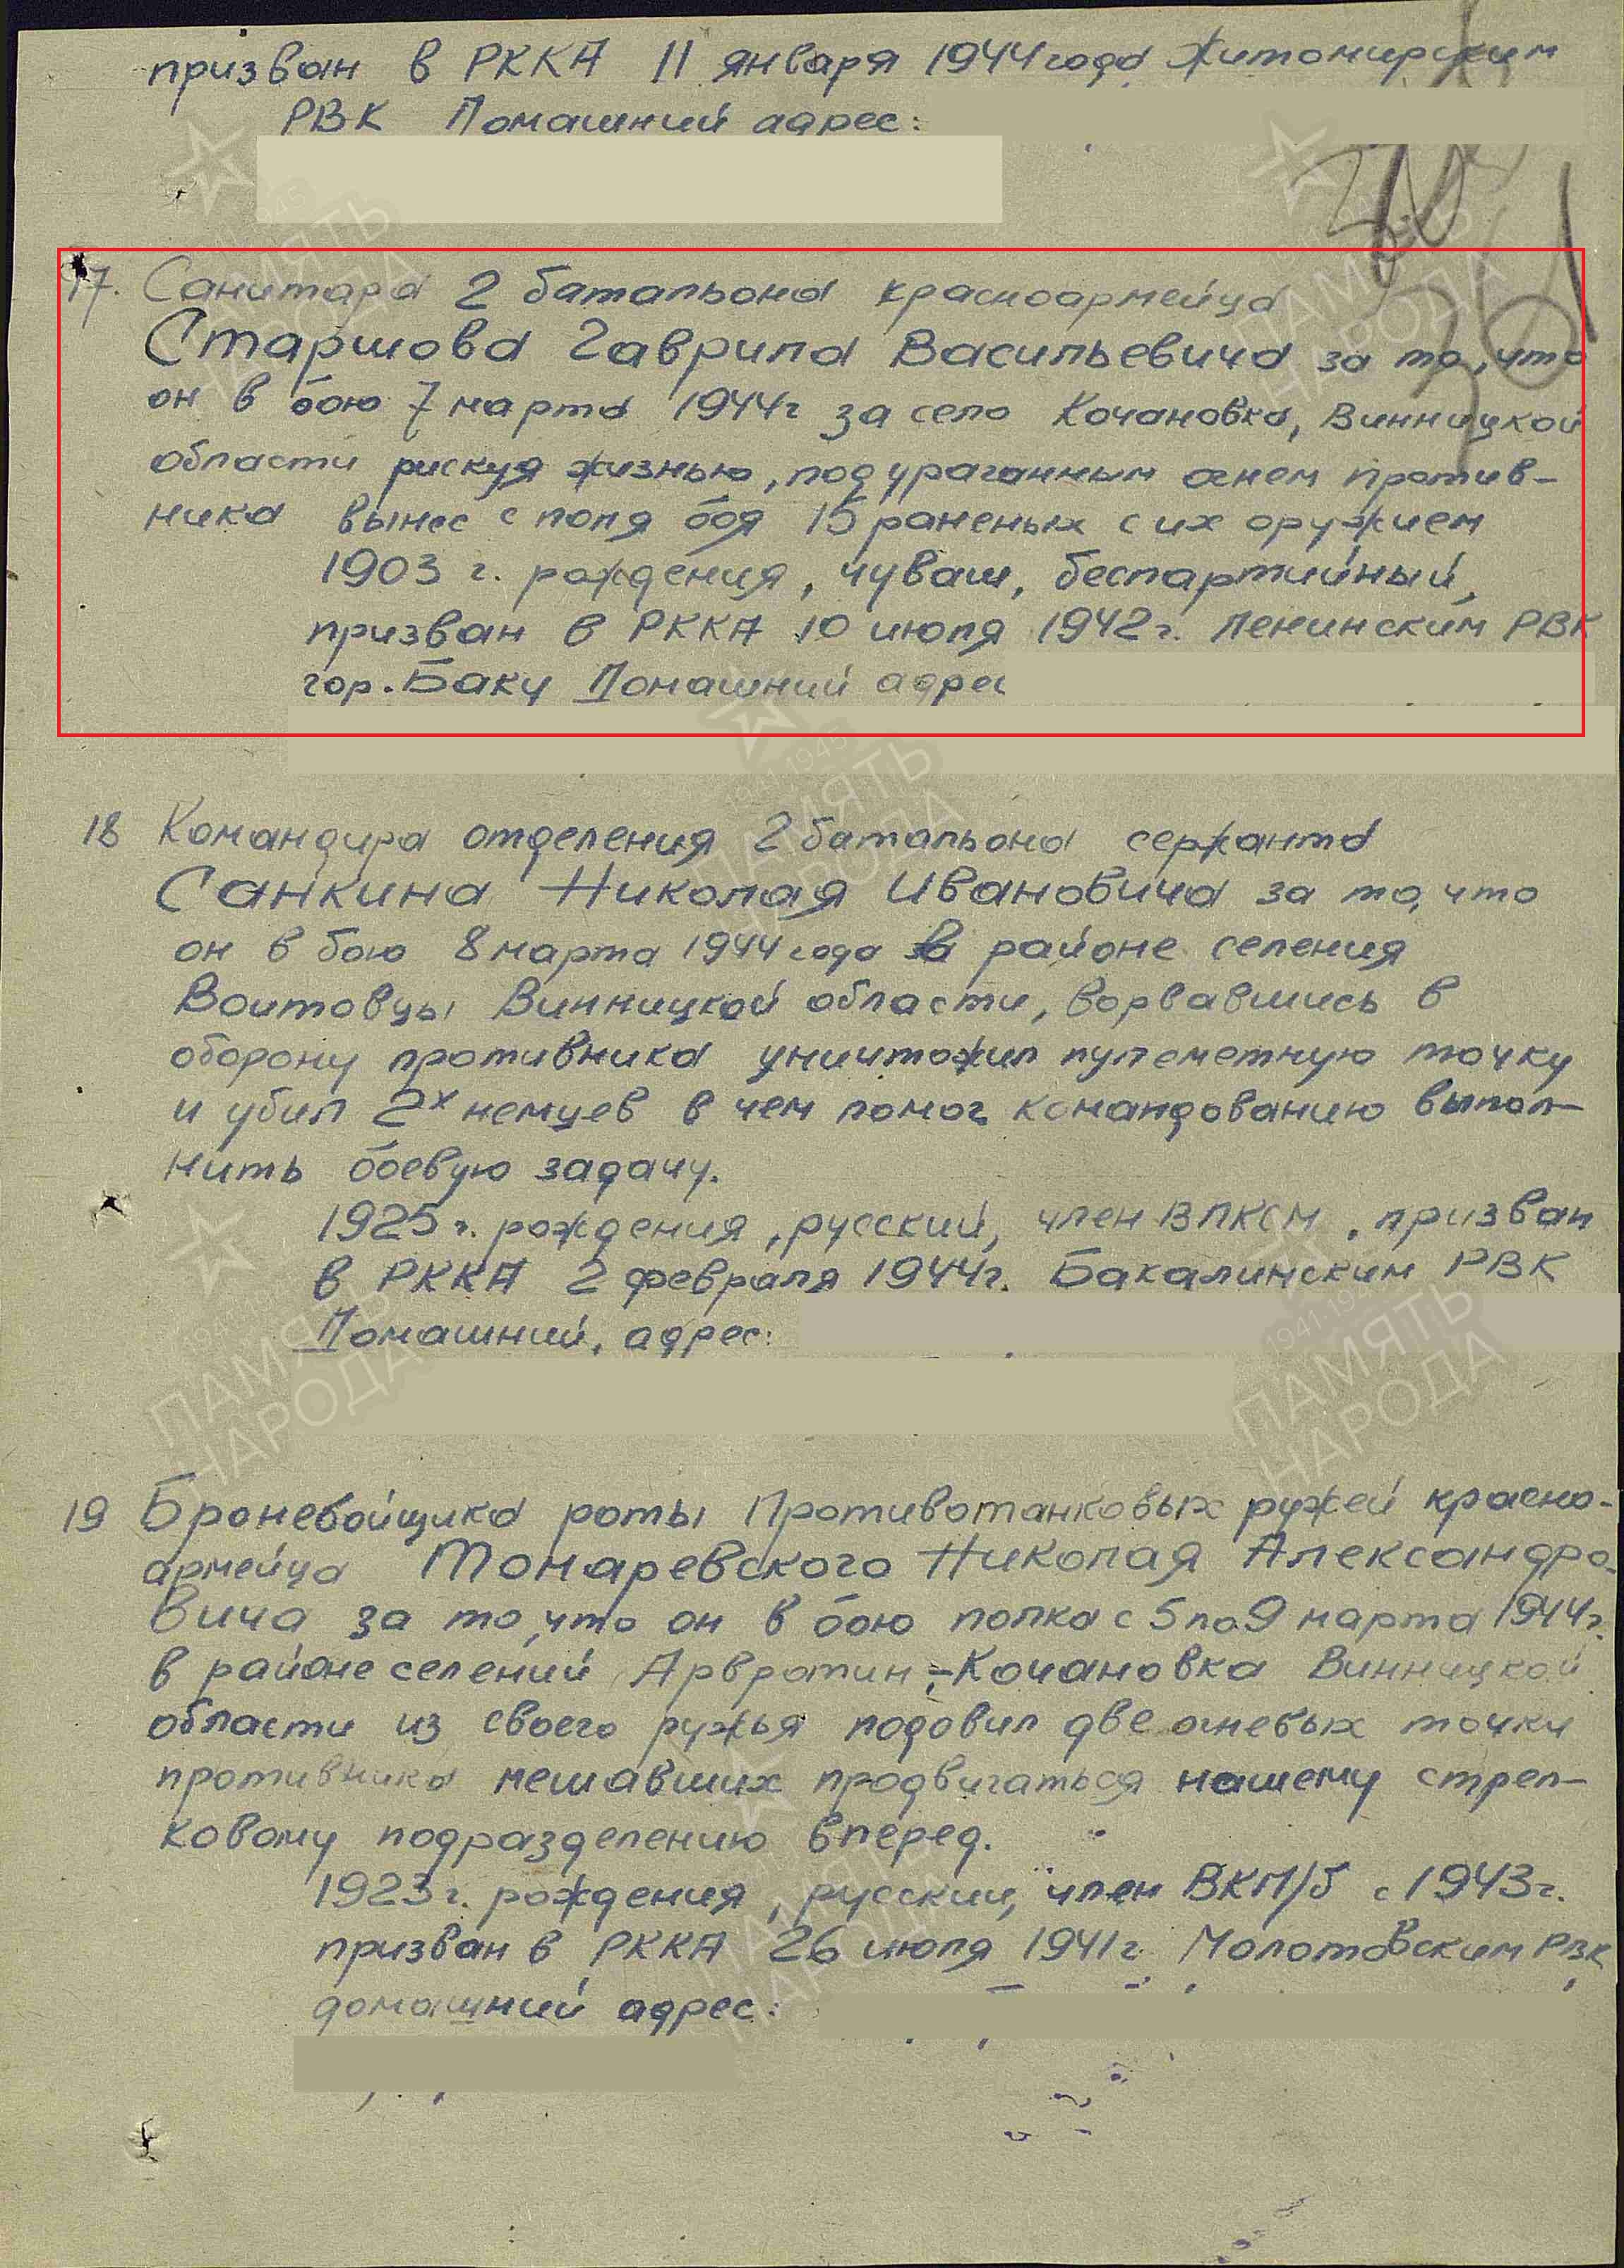 призван в РККА 11 января 1944 года Житомирским
РВК Домашний адрес:
17. Санитара 2 батальона красноармейца
Старшова Гаврила Васильевича за то, что
он в бою 7 марта 1944г за село Кочановка, Винницкой
области рискуя жизнью, под ураганным огнем против-
ника вынес с поля боя 15 раненых с их оружием
1903 г. рождения, чуваш, беспартийный,
призван в РККА 10 июля 1942г. Ленинским РВК
гор. Баку Домашний адрес
18 Командира отделения 2 батальона сержанта
Санкина Николая Ивановича за то, что
он в бою 8 марта 1944 года в районе селения
Воитовцы Винницкой области, ворвавшись в
оборону противника уничтожил пулеметную точку
и убил 2х немцев в чем помог командованию выпол-
нить боевую задачу.
1925 г. рождения, русский, член ВЛКСМ, призван
в РККА 2 февраля 1944г. Бакалинским РВК
Домашний, адрес:
19 Бронебойщика роты Противотанковых ружей красно-
армейца Тонаревского Николая Александро-
вича за то, что он в бою полка с 5 по 9 марта 1944г.
в районе селений Арвратин-Кочановка Винницкой
области из своего ружья подавил две огневых точки
противника мешавших продвигаться нашему стрел-
ковому подразделению вперед.
1923г. рождения, русский, член ВКП/б с 1943г.
призван в РККА 26 июля 1941г Молотовским РВК
домашний адрес:
ПАМЯТЬ
НАРОДА